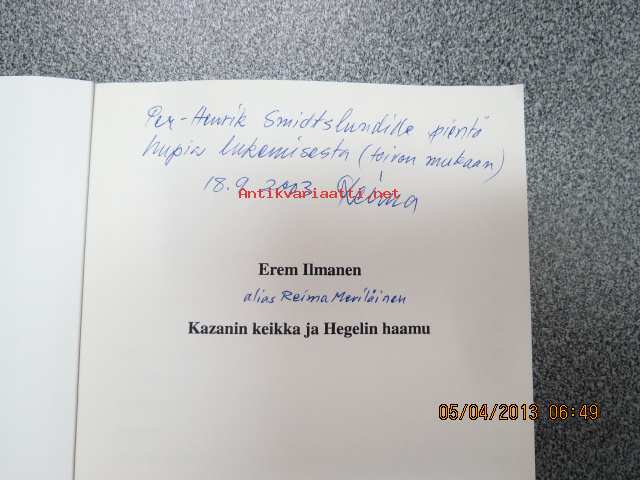 Per-Henrik Smidtslundille pientä
hupia lukemisesta (toivon mukaan)
18.9.2003 Reima
Antikvariaatti.net
Erem Ilmanen
alias Reima Meriläinen
Kazanin keikka ja Hegelin haamu
05/04/2013 06:49